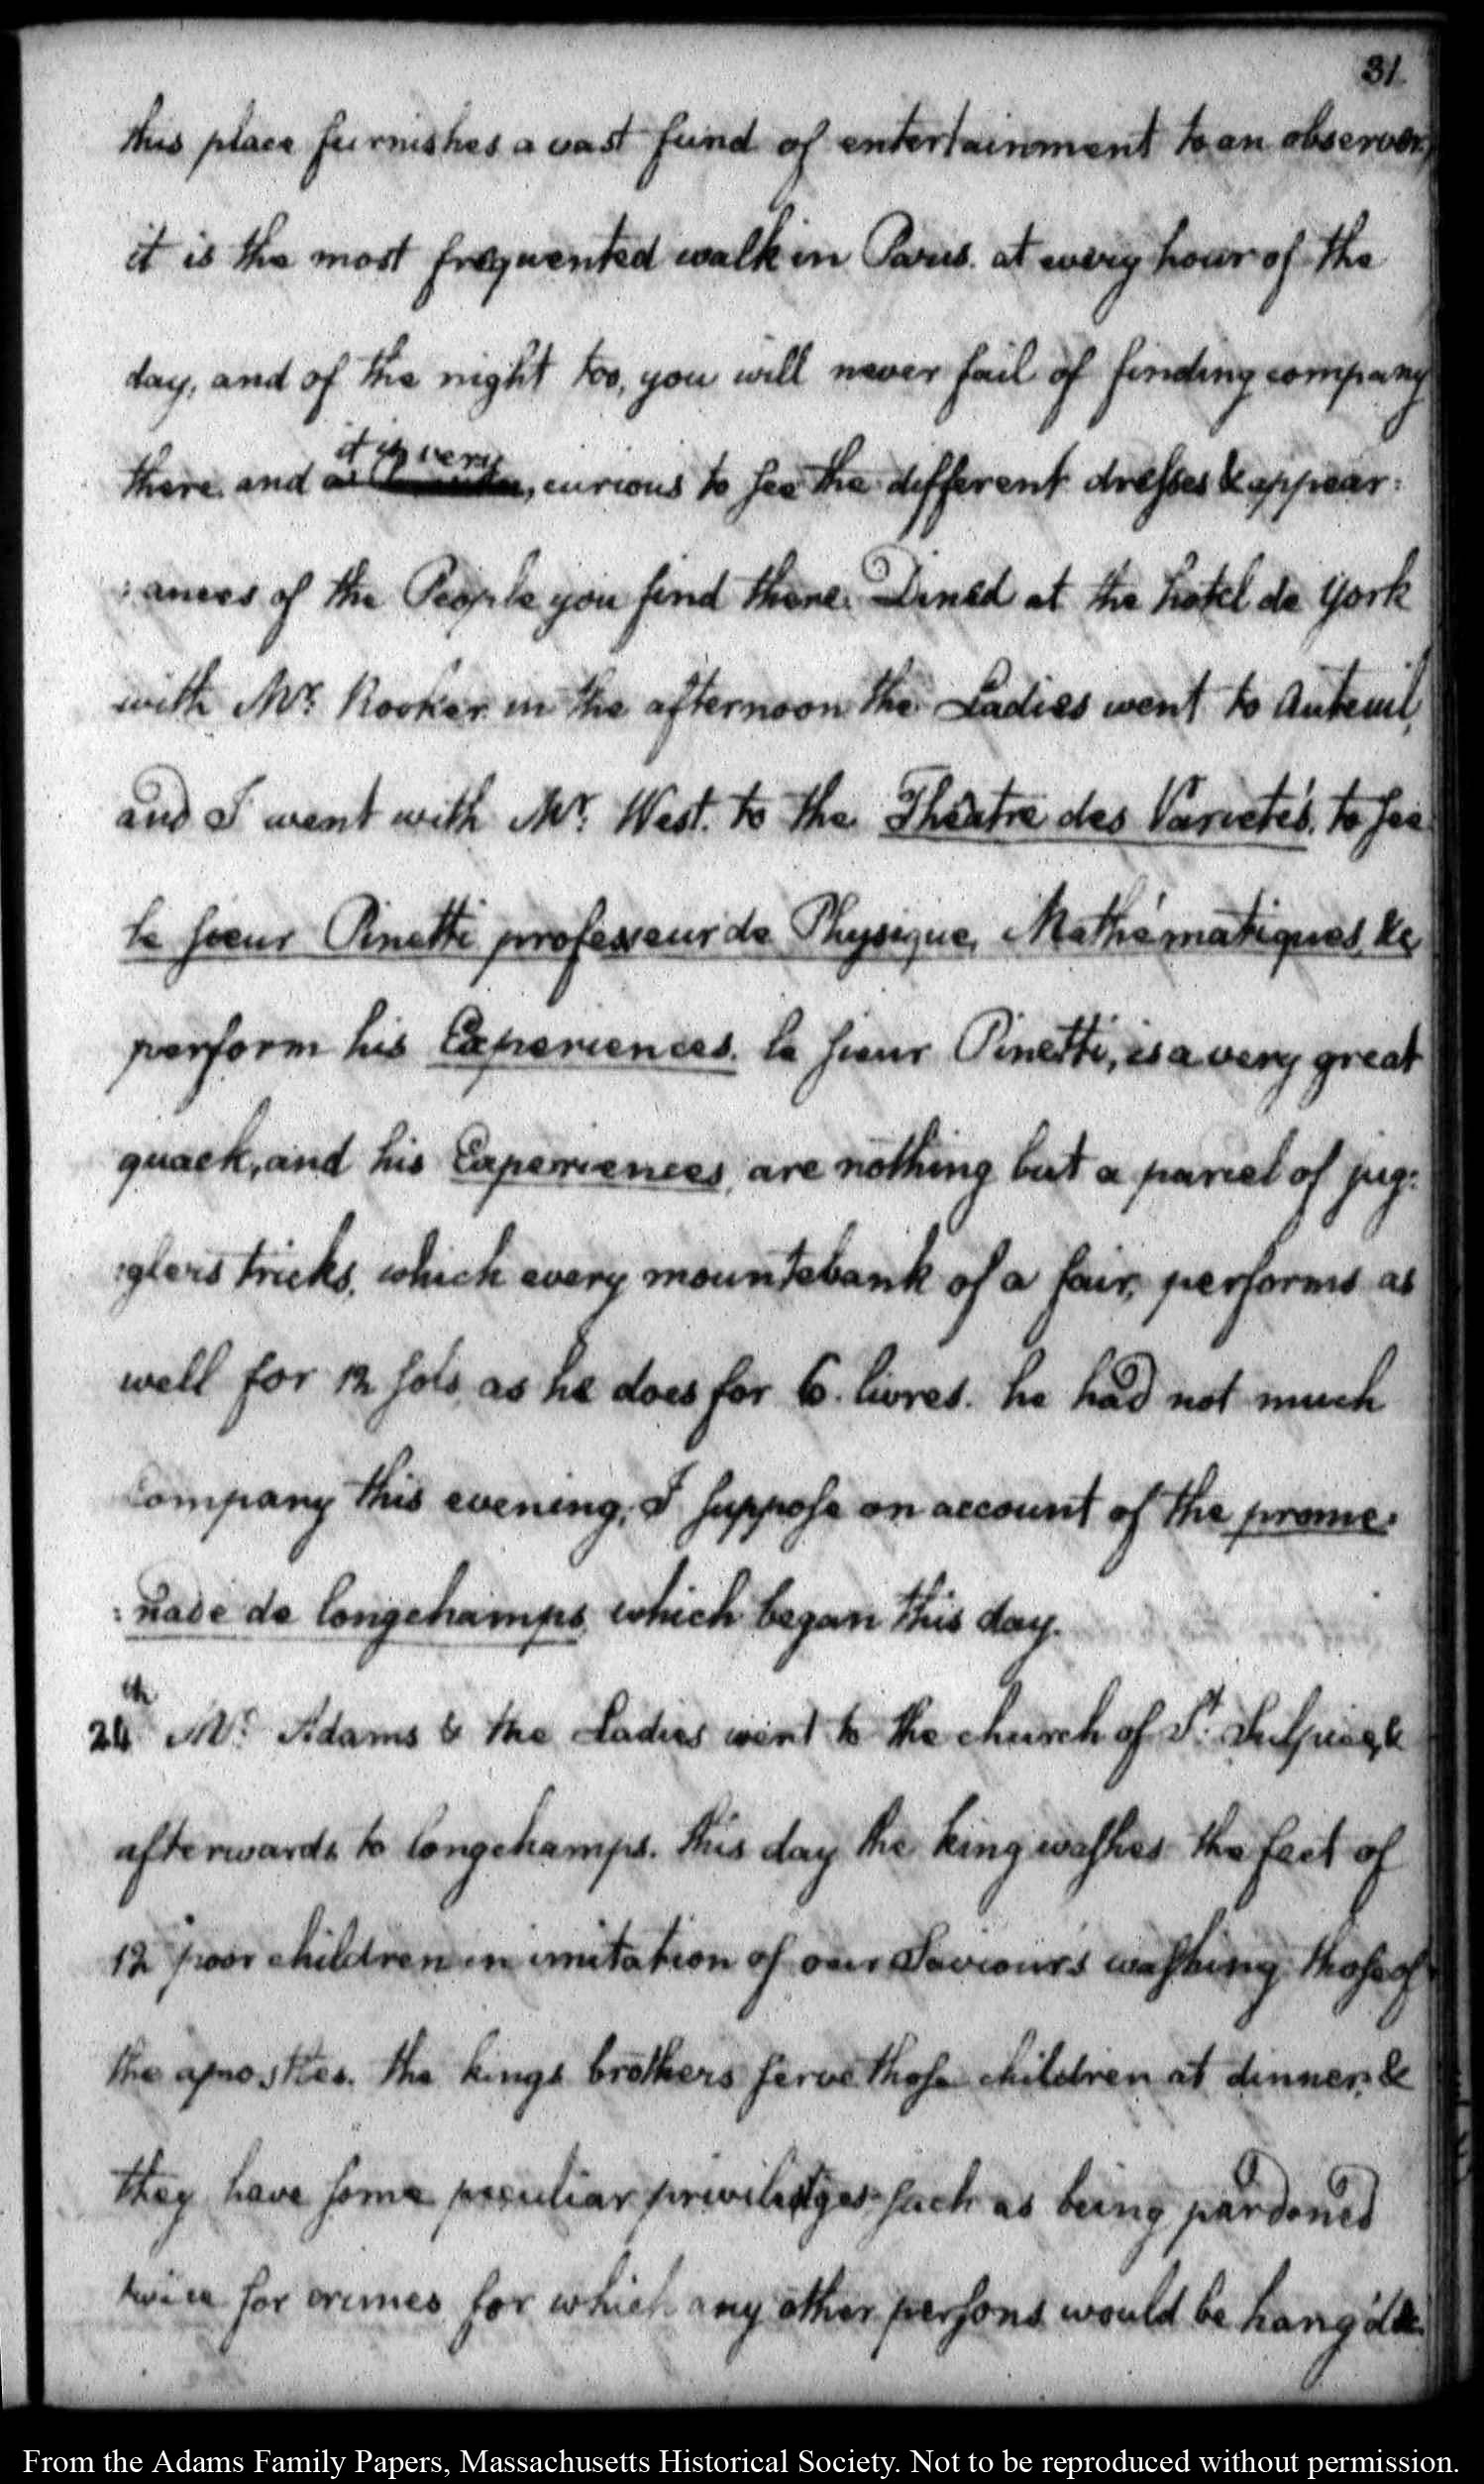 31
this place furnishes a vast fund of entertainment to an observer,
it is the most frequented walk in Paris. at every hour of the
day, and of the night too, you will never fail of finding company
it is very
there. and , curious to see the different dresses & appear:
:ances of the People you find there. Dined at the hotel de York
with Mr. Rooker in the afternoon the Ladies went to Auteuil,
and I went with Mr. West. to the Théatre des Varietés, to see
le sieur Pinetti professeur de Physique, Mathématiques, &c
perform his Experiences. le sieur Pinetti, is a very great
quack, and his Experiences, are nothing but a parcel of jug:
:glers tricks, which every mountebank of a fair, performs as
well for 12 sols, as he does for 6. livres. he had not much
company this evening, I suppose on account of the prome:
:nade de longchamps, which began this day.
24th Mr. Adams & the Ladies went to the church of St. Sulpice, &
afterwards to longchamps. this day the king washes the feet of
12 poor children in imitation of our Saviour's washing those of
the apostles. the kings brothers serve those children at dinner, &
they have some peculiar priviledges such as being pardoned
twice for crimes for which any other persons would be hang'd &c.
From the Adams Family Papers, Massachusetts Historical Society. Not to be reproduced without permission.